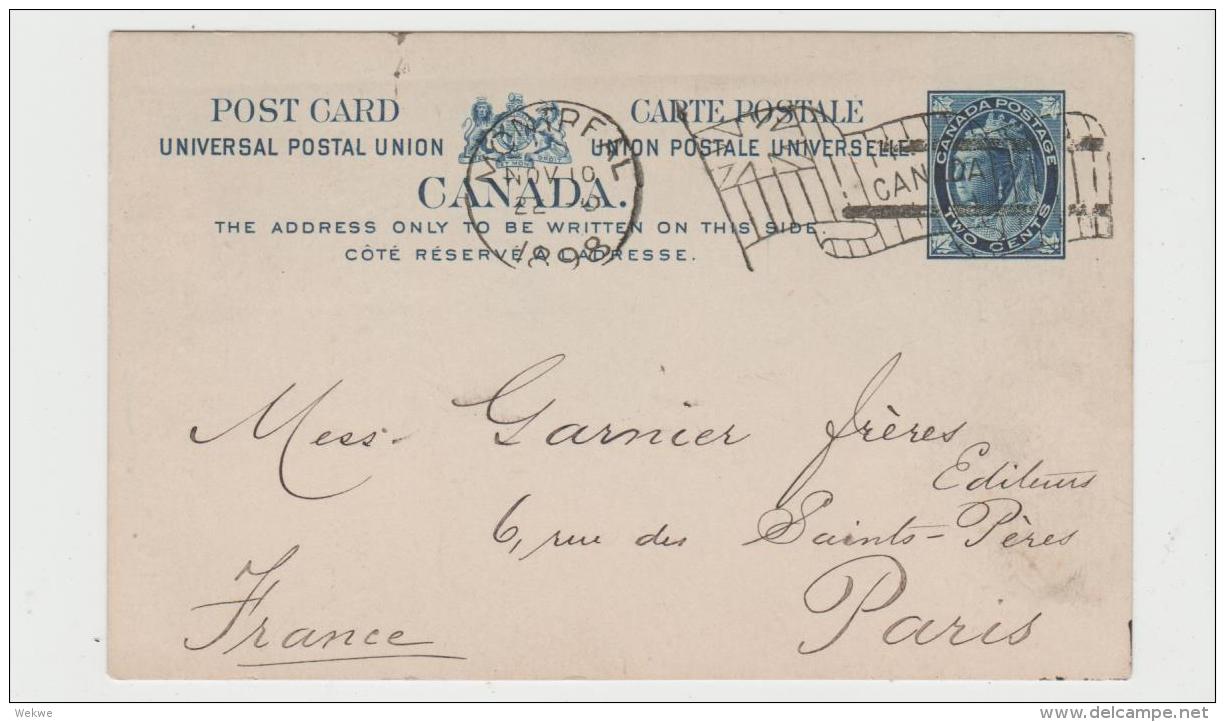 POST CARD CARTE POSTALE
UNIVERSAL POSTAL UNION UNION POSTALE UNIVERSELLE
CANADA.
THE ADDRESS ONLY TO BE WRITTEN ON THIS SIDE.
CÔTÉ RÉSERVÉ A L'ADRESSE.
MONTREAL
NOV 10
1898
CANADA
CANADA POSTAGE
TWO CENTS
Mess. Garnier frères
Editeurs
6, rue des Saints-Pères
Paris
France
Wekwe
delcampe.net